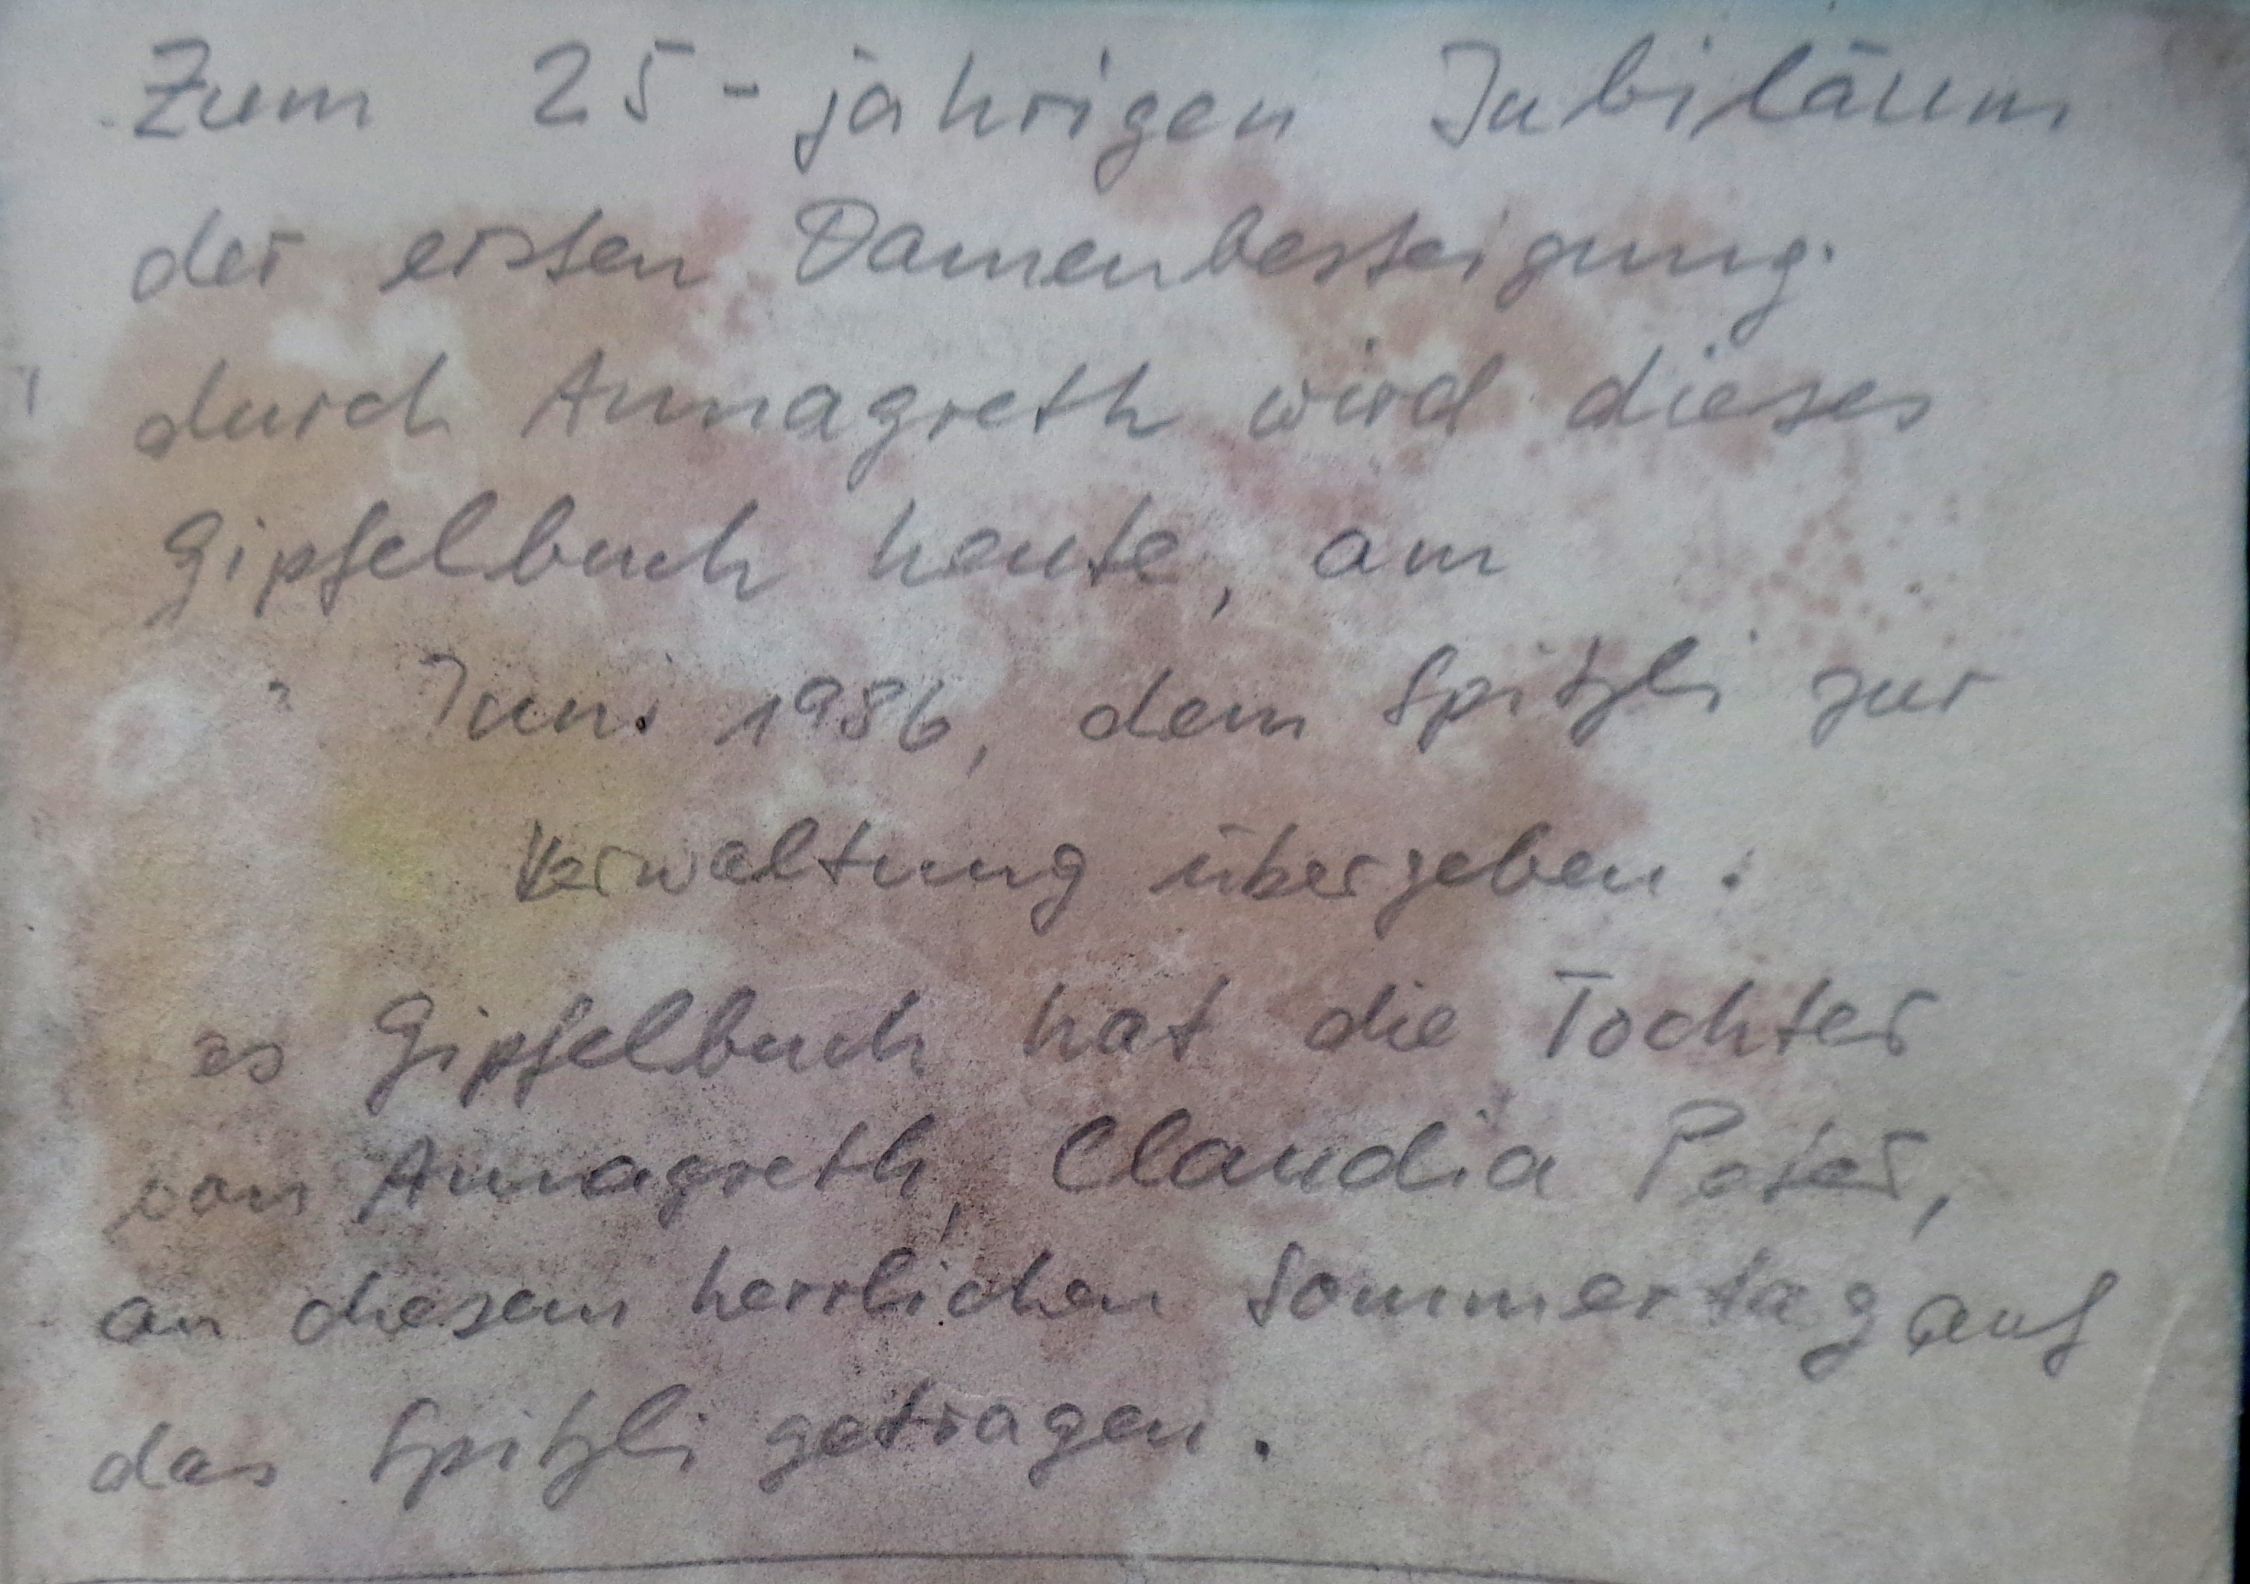 Zum 25-jährigen Jubiläum
der ersten Damenbesteigung
durch Annagreth wird dieses
Gipfelbuch heute, am
Juni 1986, dem Spitzli zur
Verwaltung übergeben.
es Gipfelbuch hat die Tochter
von Annagreth, Claudia Peter,
an diesem herrlichen Sommertag auf
das Spitzli getragen.